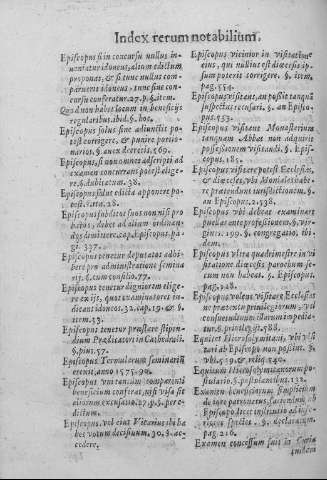 Index rerum notabilium.
Episcopus si in concursu nullus in-
ueniatur idoneus, aliam edictum
proponat, & si tunc nullus com-
pareat idoneus, tunc sine con-
cursu conferatur. 27. p. §. item.
Quod non habet locum in beneficijs
regularibus. ibid. §. hoc
Episcopus solus sine adiunctis po-
test corrigere, & punire portio-
narios. §. an ex decretis. 569.
Episcopus, si non omnes adscripti ad
examen concurrant potest elige-
re. §. dubitatur. 38.
Episcopus solus edicta apponere po-
test. 28.
Episcopus subditos suos non nisi pro
batos, debet ad alium ordinan-
dos dimittere. cap. Episcopus. pa-
gi. 337.
Episcopus tenetur deputatos adhi-
bere pro administratione semina
rij. §. cum consilio. 77.
Episcopus tenetur digniorem elige-
re ex ijs, quos examinatores in-
dicant idoneos. 32. cap. 19. & §.
item. 33.
Episcopus tenetur præstare stipen-
dium Prædicatori in Cathedrali.
§. pin. 57.
Episcopus Terulorum seminarium
erexit anno 1575. 90.
Episcopus vnitantum comparenti
beneficium conferat, nisi vsu sit
aliorum excusatio. 27. p. §. pere-
dictum.
Episcopus, vel eius Vicarius ib ha
bet votum decisiuum. 30. §. ac-
cedere.
Episcopus vicinior in visitatione
eius, qui nullius est diœcesis ip-
sum poterit corrigere. §. item,
pag. 554.
Episcopus visitans, an possit tanquã
suspectus recusari. §. an Episco-
pus. 553.
Episcopus visitans Monasterium
tanquam Abbas non adquirit
possessionem visitandi. §. Episco-
copus. 185.
Episcopus visitare potest Ecclesias,
& diœceses, vbi Monasteria habe-
re prætendunt iurisdictionem. §.
an Episcopus. 2. 538.
Episcopus vbi debeat examinare
puellas ante professionem. §. vir-
gines. 199. §. congregatio, ibi-
dem.
Episcopus vltra quadrimestre in vi
sitatione diœcesis parochum se-
cum non habeat. §. Episcopus.
pag. 528.
Episcopus volens visitare Ecclesias
ne præterit priuilegiorum, vel
consuetudinum clericum impedia-
tur. §. priuilegijs. 588.
Equites Hierosolymitani, vbi visi-
tari ab Episcopo non possint. §.
vbi. 539. & reliq. 540.
Equitum Hierosolymitanorum po-
stulatio. §. postulantibus. 132.
Examen beneficiorum Baptisterij
de iure patronatus, faciendum ab
Episcopo licet institutio ad infe-
riorem spectet. §. declaratum.
pag. 216.
Examen concessum fuit in Curia